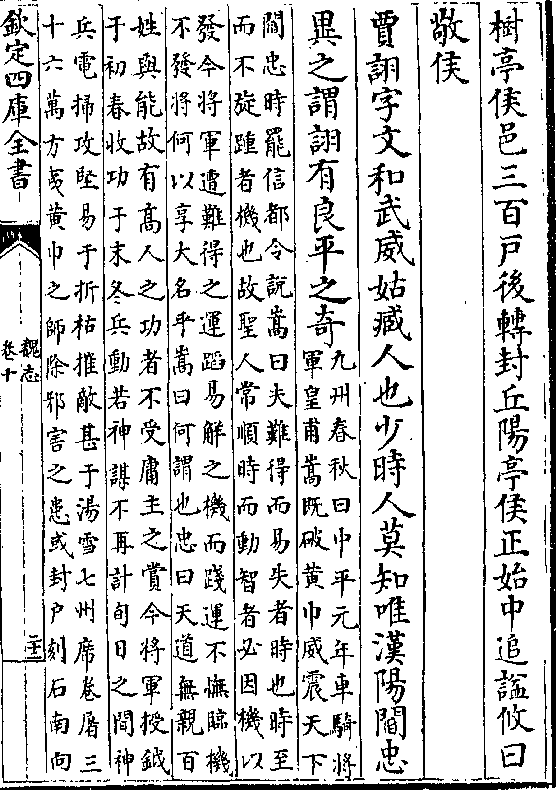 樹亭侯邑三百戸後轉封丘陽亭侯正始中追諡攸曰
敬侯
賈詡字文和武威姑臧人也少時人莫知唯漢陽閻忠
異之謂詡有良平之奇
九州春秋曰中平元年車騎將
軍皇甫嵩既破黄巾威震天下
閻忠時罷信都令説嵩曰夫難得而易失者時也時至
而不旋踵者機也故聖人常順時而動智者必因機以
發今將軍遭難得之運蹈易解之機而踐運不撫臨機
不發將何以享大名乎嵩曰何謂也忠曰天道無親百
姓與能故有髙人之功者不受庸主之賞今將軍授鉞
于初春收功于末冬兵動若神謀不再計旬日之間神
兵電掃攻堅易于折枯摧敵甚于湯雪七州席卷屠三
十六萬方夷黄巾之師除邪害之患或封户刻石南向
欽定四庫全書
魏志
卷十
二十一